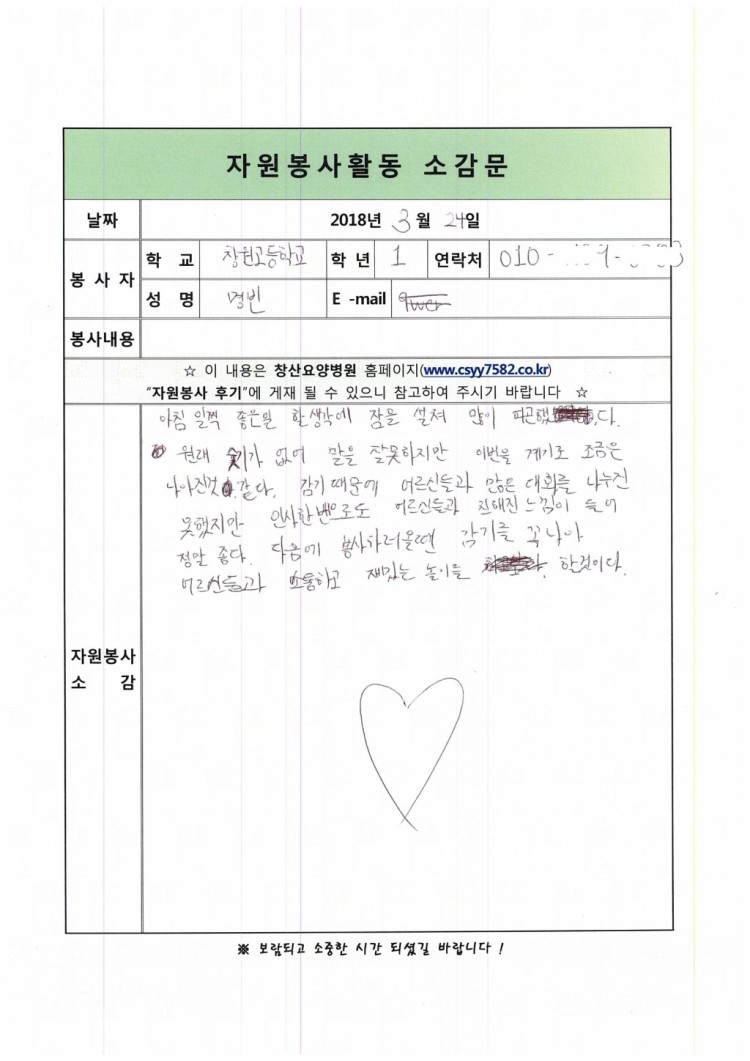 자원봉사활동 소감문
날짜 2018년 3월 24일
봉사자 학 교 창원고등학교 학 년 1 연락처 010-
성 명 명빈 E-mail
봉사내용
☆ 이 내용은 창산요양병원 홈페이지(www.csyy7582.co.kr)
"자원봉사 후기"에 게재 될 수 있으니 참고하여 주시기 바랍니다 ☆
아침 일찍 좋은일 할생각에 잠을 설쳐 많이 피곤했다.
원래 숫기가 없어 말을 잘못하지만 이번을 계기로 조금은
나아진것 같다. 감기 때문에 어르신들과 많은 대화를 나누진
못했지만 인사한번으로도 어르신들과 친해진 느낌이 들어
정말 좋다. 다음에 봉사하러올땐 감기를 꼭 나아
어르신들과 소통하고 재밌는 놀이를 할것이다.
자원봉사
소 감
※ 보람되고 소중한 시간 되셨길 바랍니다 !